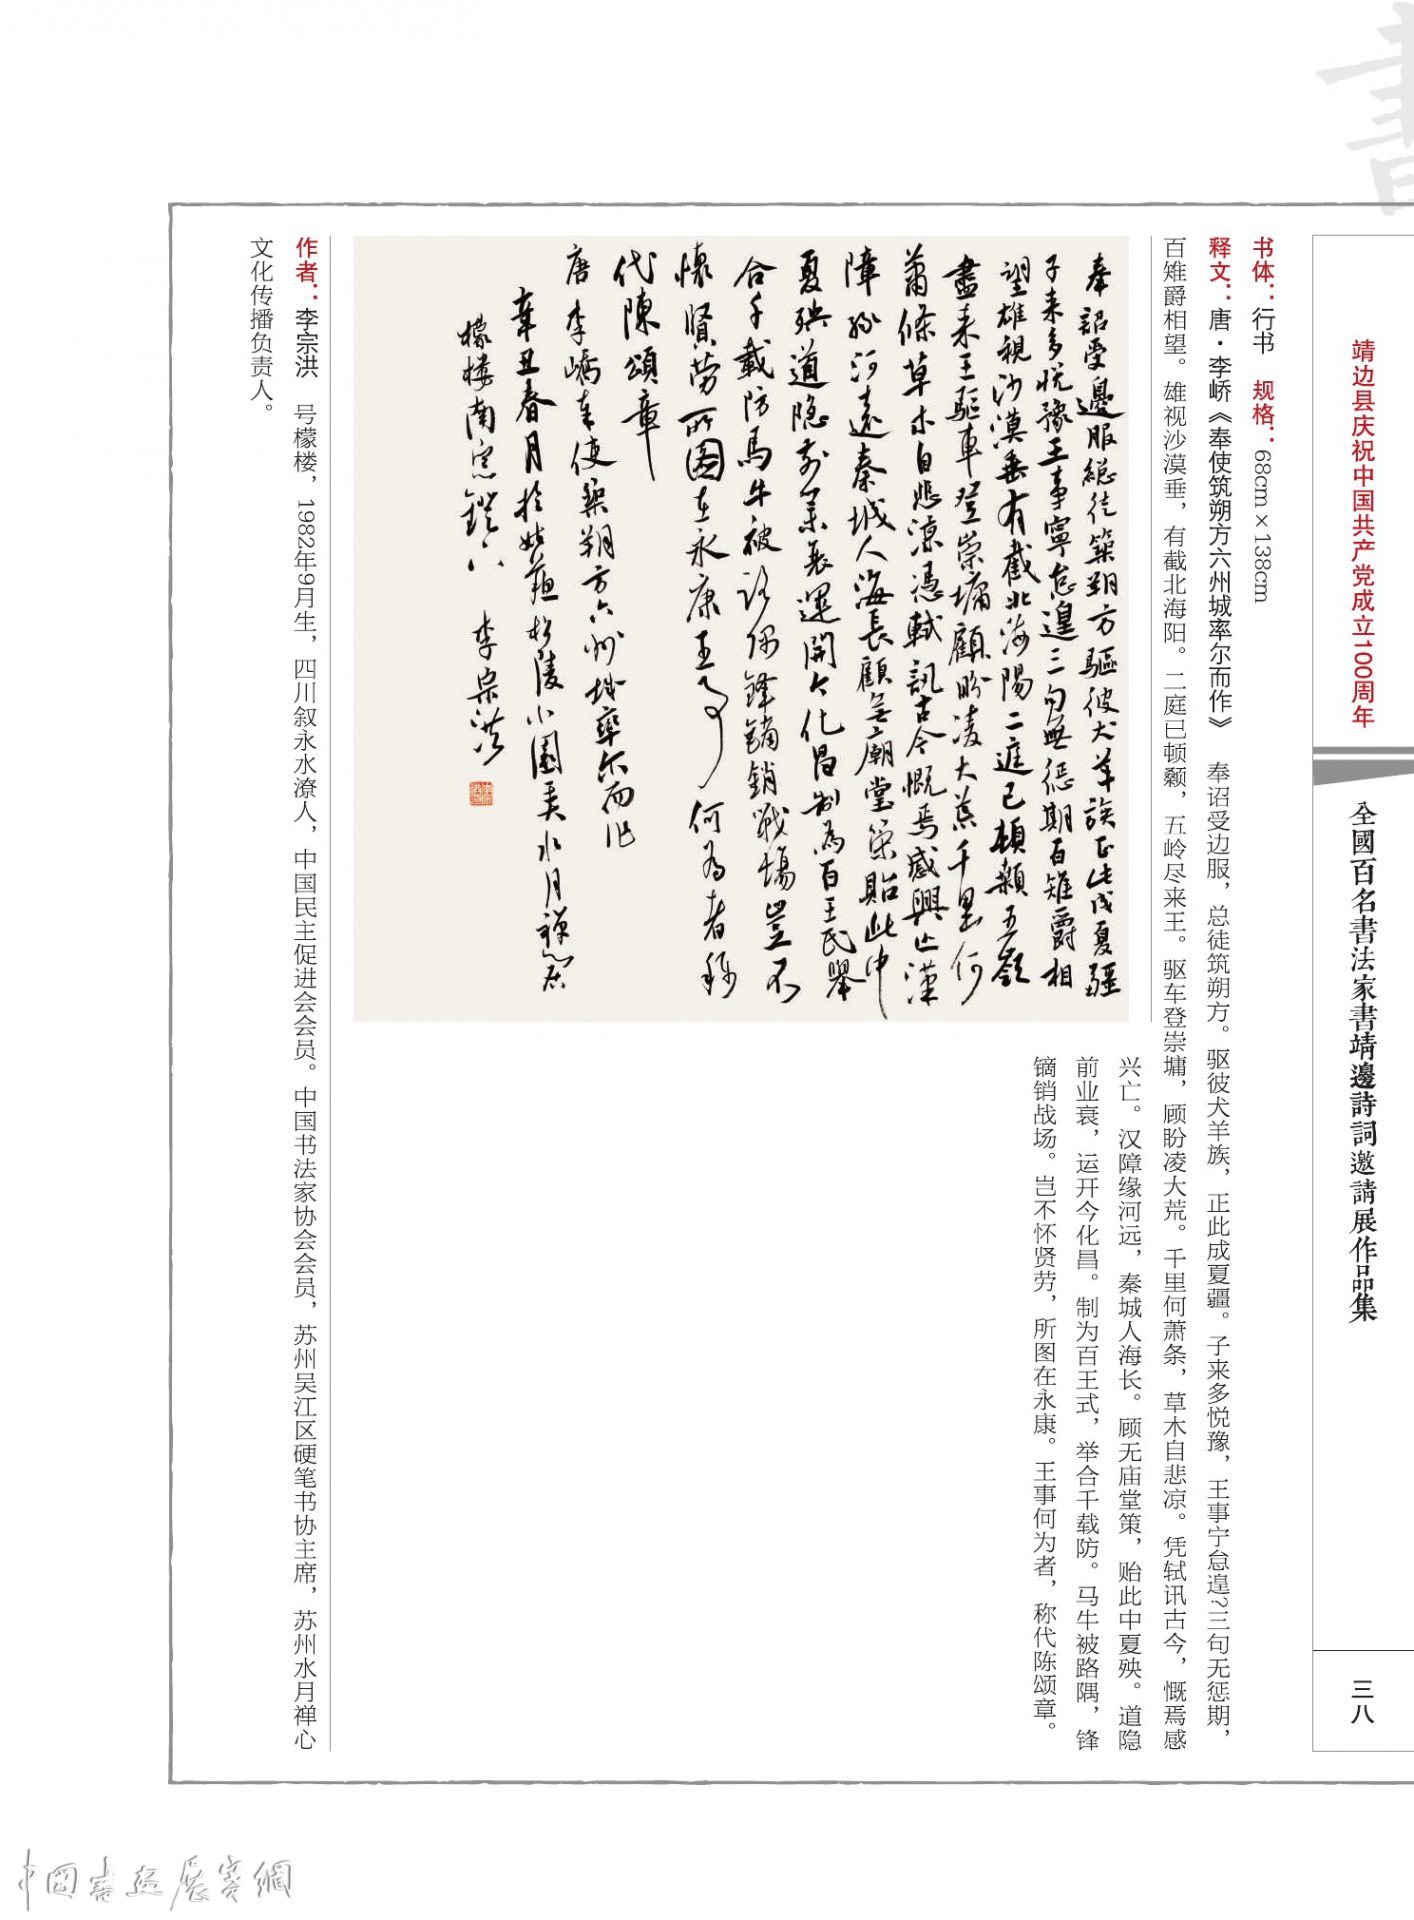 書
靖边县庆祝中国共产党成立100周年
全國百名書法家書靖邊詩詞邀請展作品集
三八
书体：行书　规格：68cm×138cm
释文：唐·李峤《奉使筑朔方六州城率尔而作》　奉诏受边服，总徒筑朔方。驱彼犬羊族，正此成夏疆。子来多悦豫，王事宁怠遑?三旬无惩期，
百雉爵相望。雄视沙漠垂，有截北海阳。二庭已顿颡，五岭尽来王。驱车登崇墉，顾盼凌大荒。千里何萧条，草木自悲凉。凭轼讯古今，慨焉感
兴亡。汉障缘河远，秦城人海长。顾无庙堂策，贻此中夏殃。道隐
前业衰，运开今化昌。制为百王式，举合千载防。马牛被路隅，锋
镝销战场。岂不怀贤劳，所图在永康。王事何为者，称代陈颂章。
奉詔受邊服総徒築朔方驅彼犬羊族正此戌夏疆
子来多悦豫王事寧怠遑三旬無惩期百雉爵相
望雄視沙漠垂有截北海陽二庭已頓顙五嶺
盡来王驅車登崇墉顧盼凌大荒千里何
蕭條草木自悲涼憑軾訊古今慨焉感興亡漢
障緣河遠秦城人海長顧無廟堂策貽此中
夏殃道隐前業衰運開今化昌制為百王式舉
合千載防馬牛被路隅鋒鏑銷戰場豈不
懷賢劳所圖在永康王事何為者称
代陳頌章
唐李嶠奉使築朔方六州城率尔而作
辛丑春月於姑蘇松陵小園美水月禅心居
檬樓南窓鐙下　李宗洪
作者：李宗洪　号檬楼，1982年9月生，四川叙永水潦人，中国民主促进会会员。中国书法家协会会员，苏州吴江区硬笔书协主席，苏州水月禅心
文化传播负责人。
中國書畫展賽網